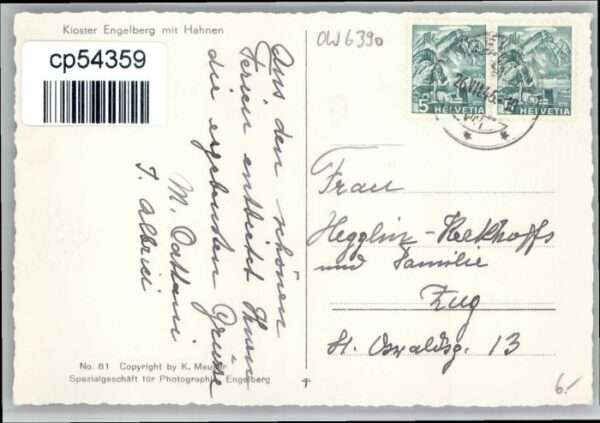 Kloster Engelberg mit Hahnen
cp54359
OW 6390
5 HELVETIA
HELVETIA
26.VII.45.-10
Aus den schönen
Ferien entbietet Ihnen
die ergebensten Grüsse
M. Cattani
T. Albrici
Frau
Hegglin-Kerkhoffs
und Familie
Zug
St. Oswaldsg. 13
No. 81 Copyright by K. Meuser
Spezialgeschäft für Photographie Engelberg
6.-